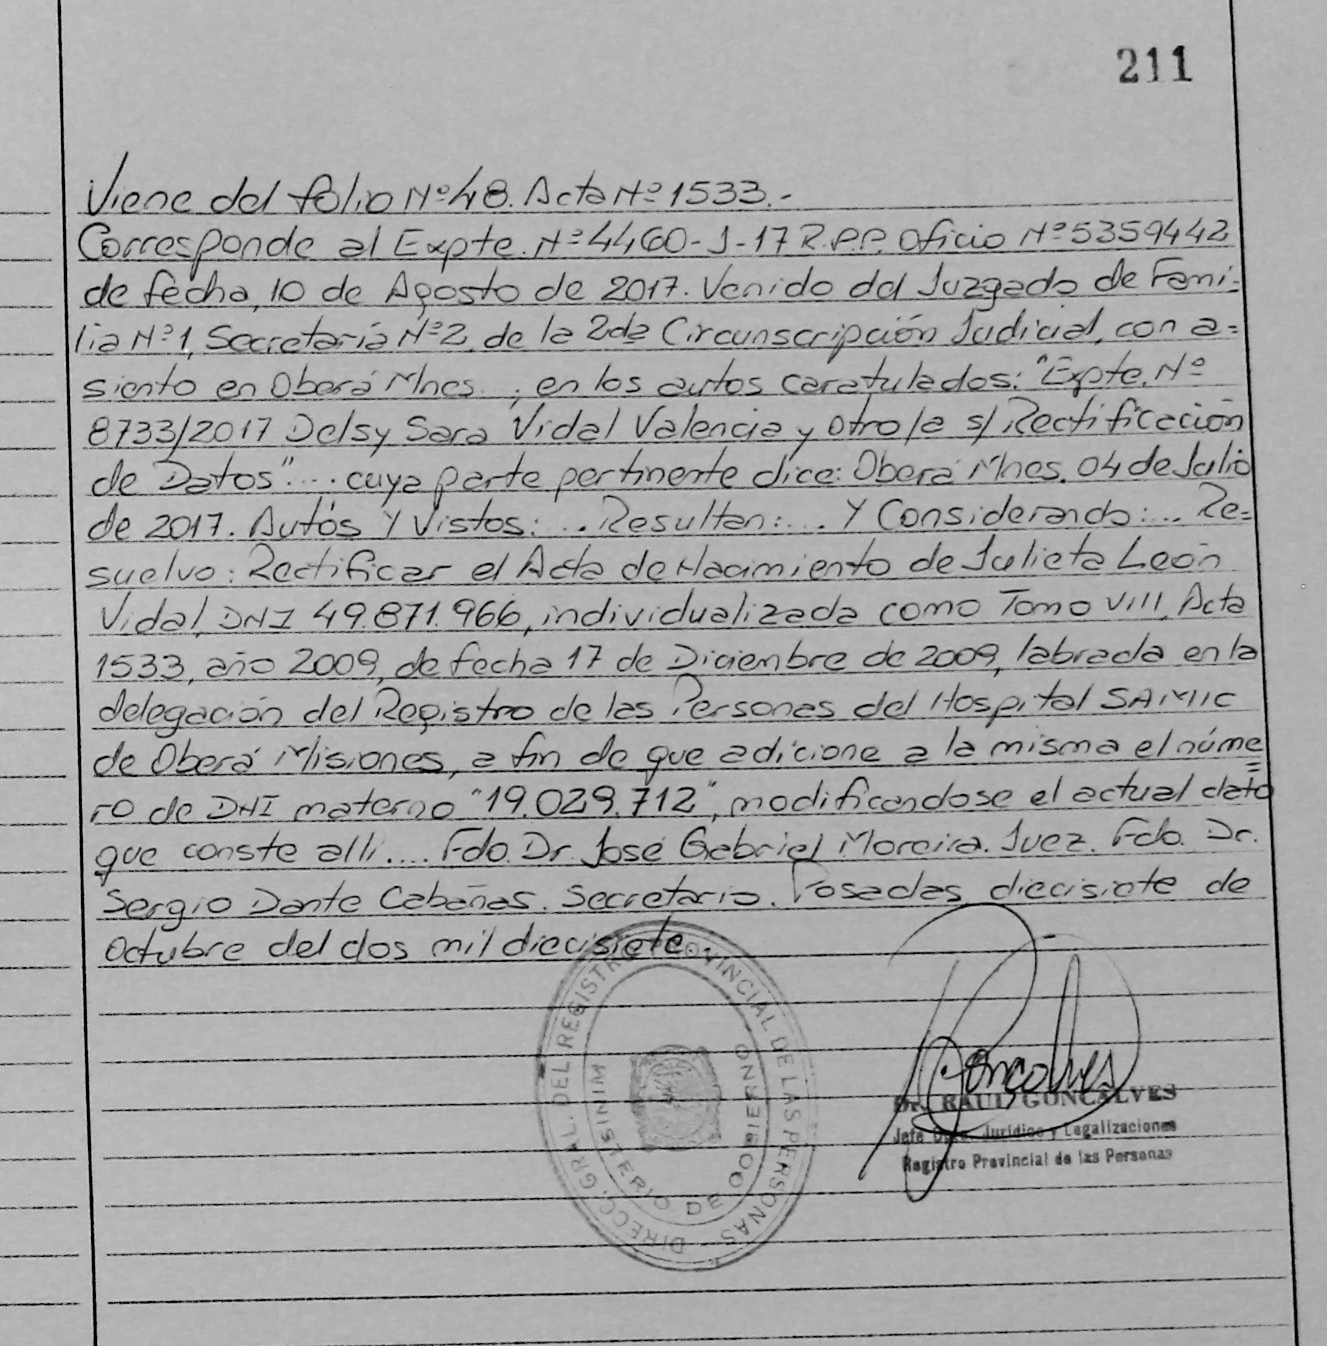 211
Viene del folio Nº 48. Acta Nº 1533.-
Corresponde al Expte. Nº 4460-J-17 R.P.P. Oficio Nº 5359442
de fecha, 10 de Agosto de 2017. Venido del Juzgado de Fami=
lia Nº 1, Secretaría Nº 2, de la 2da Circunscripción Judicial, con a=
siento en Oberá Mnes., en los autos caratulados: "Expte. Nº
8733/2017 Delsy Sara Vidal Valencia y otro/a s/ Rectificación
de Datos"... cuya parte pertinente dice: Oberá Mnes. 04 de Julio
de 2017. Autos Y Vistos:... Resultan:... Y Considerando:... Re=
suelvo: Rectificar el Acta de Nacimiento de Julieta León
Vidal, DNI 49.871.966, individualizada como Tomo VIII, Acta
1533, año 2009, de fecha 17 de Diciembre de 2009, labrada en la
delegación del Registro de las Personas del Hospital SAMIC
de Oberá Misiones, a fin de que adicione a la misma el núme=
ro de DNI materno "19.029.712", modificandose el actual dato
que conste allí.... Fdo. Dr. José Gabriel Moreira. Juez. Fdo. Dr.
Sergio Dante Cabañas. Secretario. Posadas, diecisiete de
Octubre del dos mil diecisiete.
DIRECC. GRAL. DEL REGISTRO PROVINCIAL DE LAS PERSONAS
MINISTERIO DE GOBIERNO
Goncalves
Dr. RAUL GONCALVES
Jefe Dpto. Jurídico y Legalizaciones
Registro Provincial de las Personas